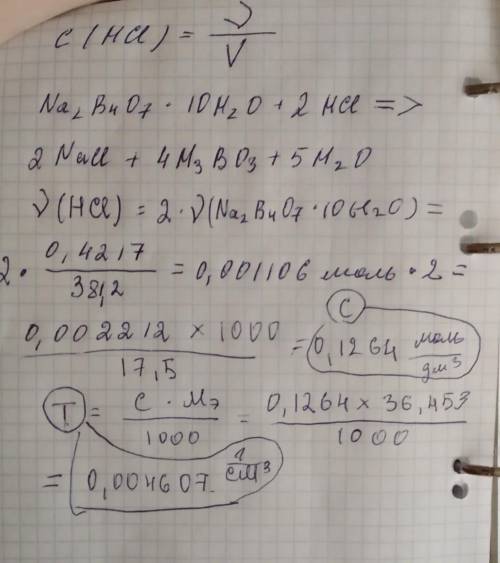 C(HCl) = ν/V
Na₂B₄O₇ · 10H₂O + 2HCl =>
2NaCl + 4H₃BO₃ + 5H₂O
ν(HCl) = 2·ν(Na₂B₄O₇·10H₂O) =
2 · 0,4217/381,2 = 0,001106 моль · 2 =
0,002212 × 1000/17,5 = 0,1264 моль/дм³ C
T = C · Mэ/1000 = 0,1264 × 36,453/1000
= 0,004607 г/см³